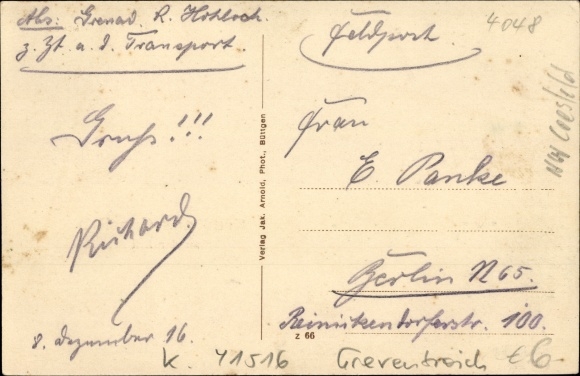 Abs: Grenad. R. Hohloch.
z. Zt a. d. Transport.
Gruß!!!
Richard.
8. Dezember 16.
Verlag Jak. Arnold, Phot., Büttgen
Feldpost.
4048
Frau
E. Panke
Berlin N 65.
Reinickendorferstr. 100.
z 66
NW Coesfeld
K. 41516
€6